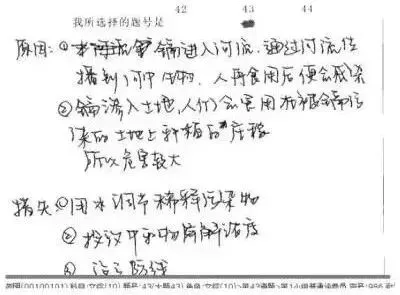 42 43 44
我所选择的题号是
原因:①镉进入河流,通过河流传
播到河中生物,人再食用后便会感染
②镉渗入土地,人们会食用在被镉污
染的土地上种植的庄稼
所以危害较大
措失①用水调节稀释污染物
②投放中和物降解浓度
③ 设立防线